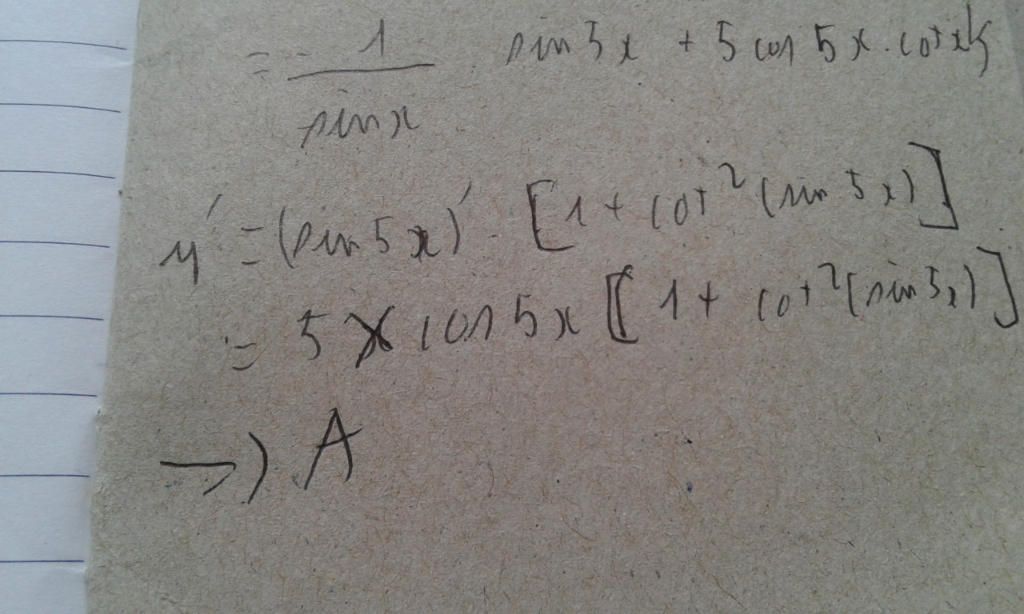 = - 1/sin x . sin 5x + 5 cos 5x . cot x
y' = (sin 5x)' . [1 + cot² (sin 5x)]
= 5 cos 5x [1 + cot² (sin 5x)]
→) A